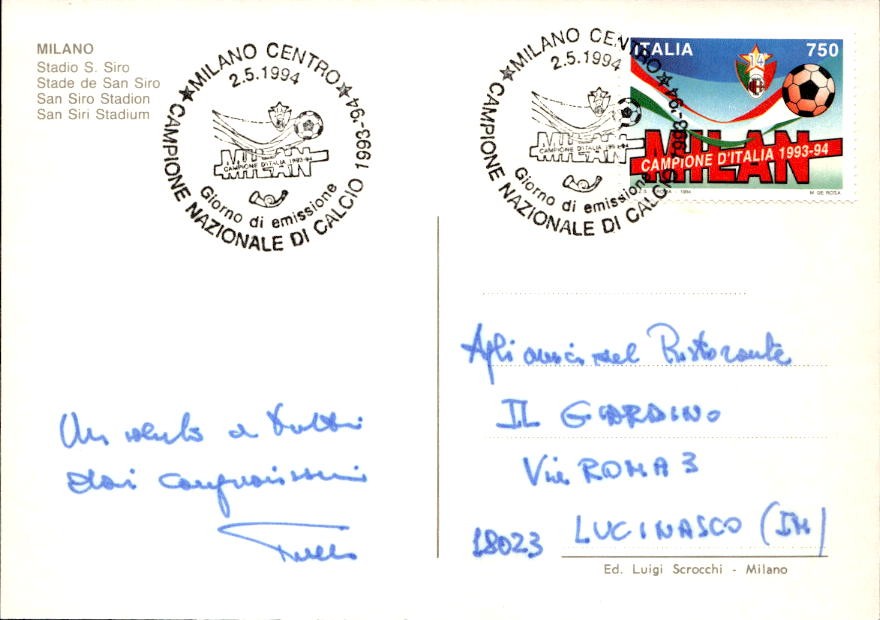 MILANO
Stadio S. Siro
Stade de San Siro
San Siro Stadion
San Siri Stadium
★MILANO CENTRO★
2.5.1994
MILAN
CAMPIONE D'ITALIA 1993-94
Giorno di emissione
CAMPIONE NAZIONALE DI CALCIO 1993-'94
★MILANO CENTRO★
2.5.1994
MILAN
CAMPIONE D'ITALIA 1993-94
Giorno di emissione
CAMPIONE NAZIONALE DI CALCIO 1993-'94
ITALIA 750
14
MILAN
CAMPIONE D'ITALIA 1993-94
ROMA - 1994 M. DE ROSA
Agli amici del Ristorante
IL GIARDINO
Via ROMA 3
18023 LUCINASCO (IM)
Un saluto a tutti
dai
Ed. Luigi Scrocchi - Milano